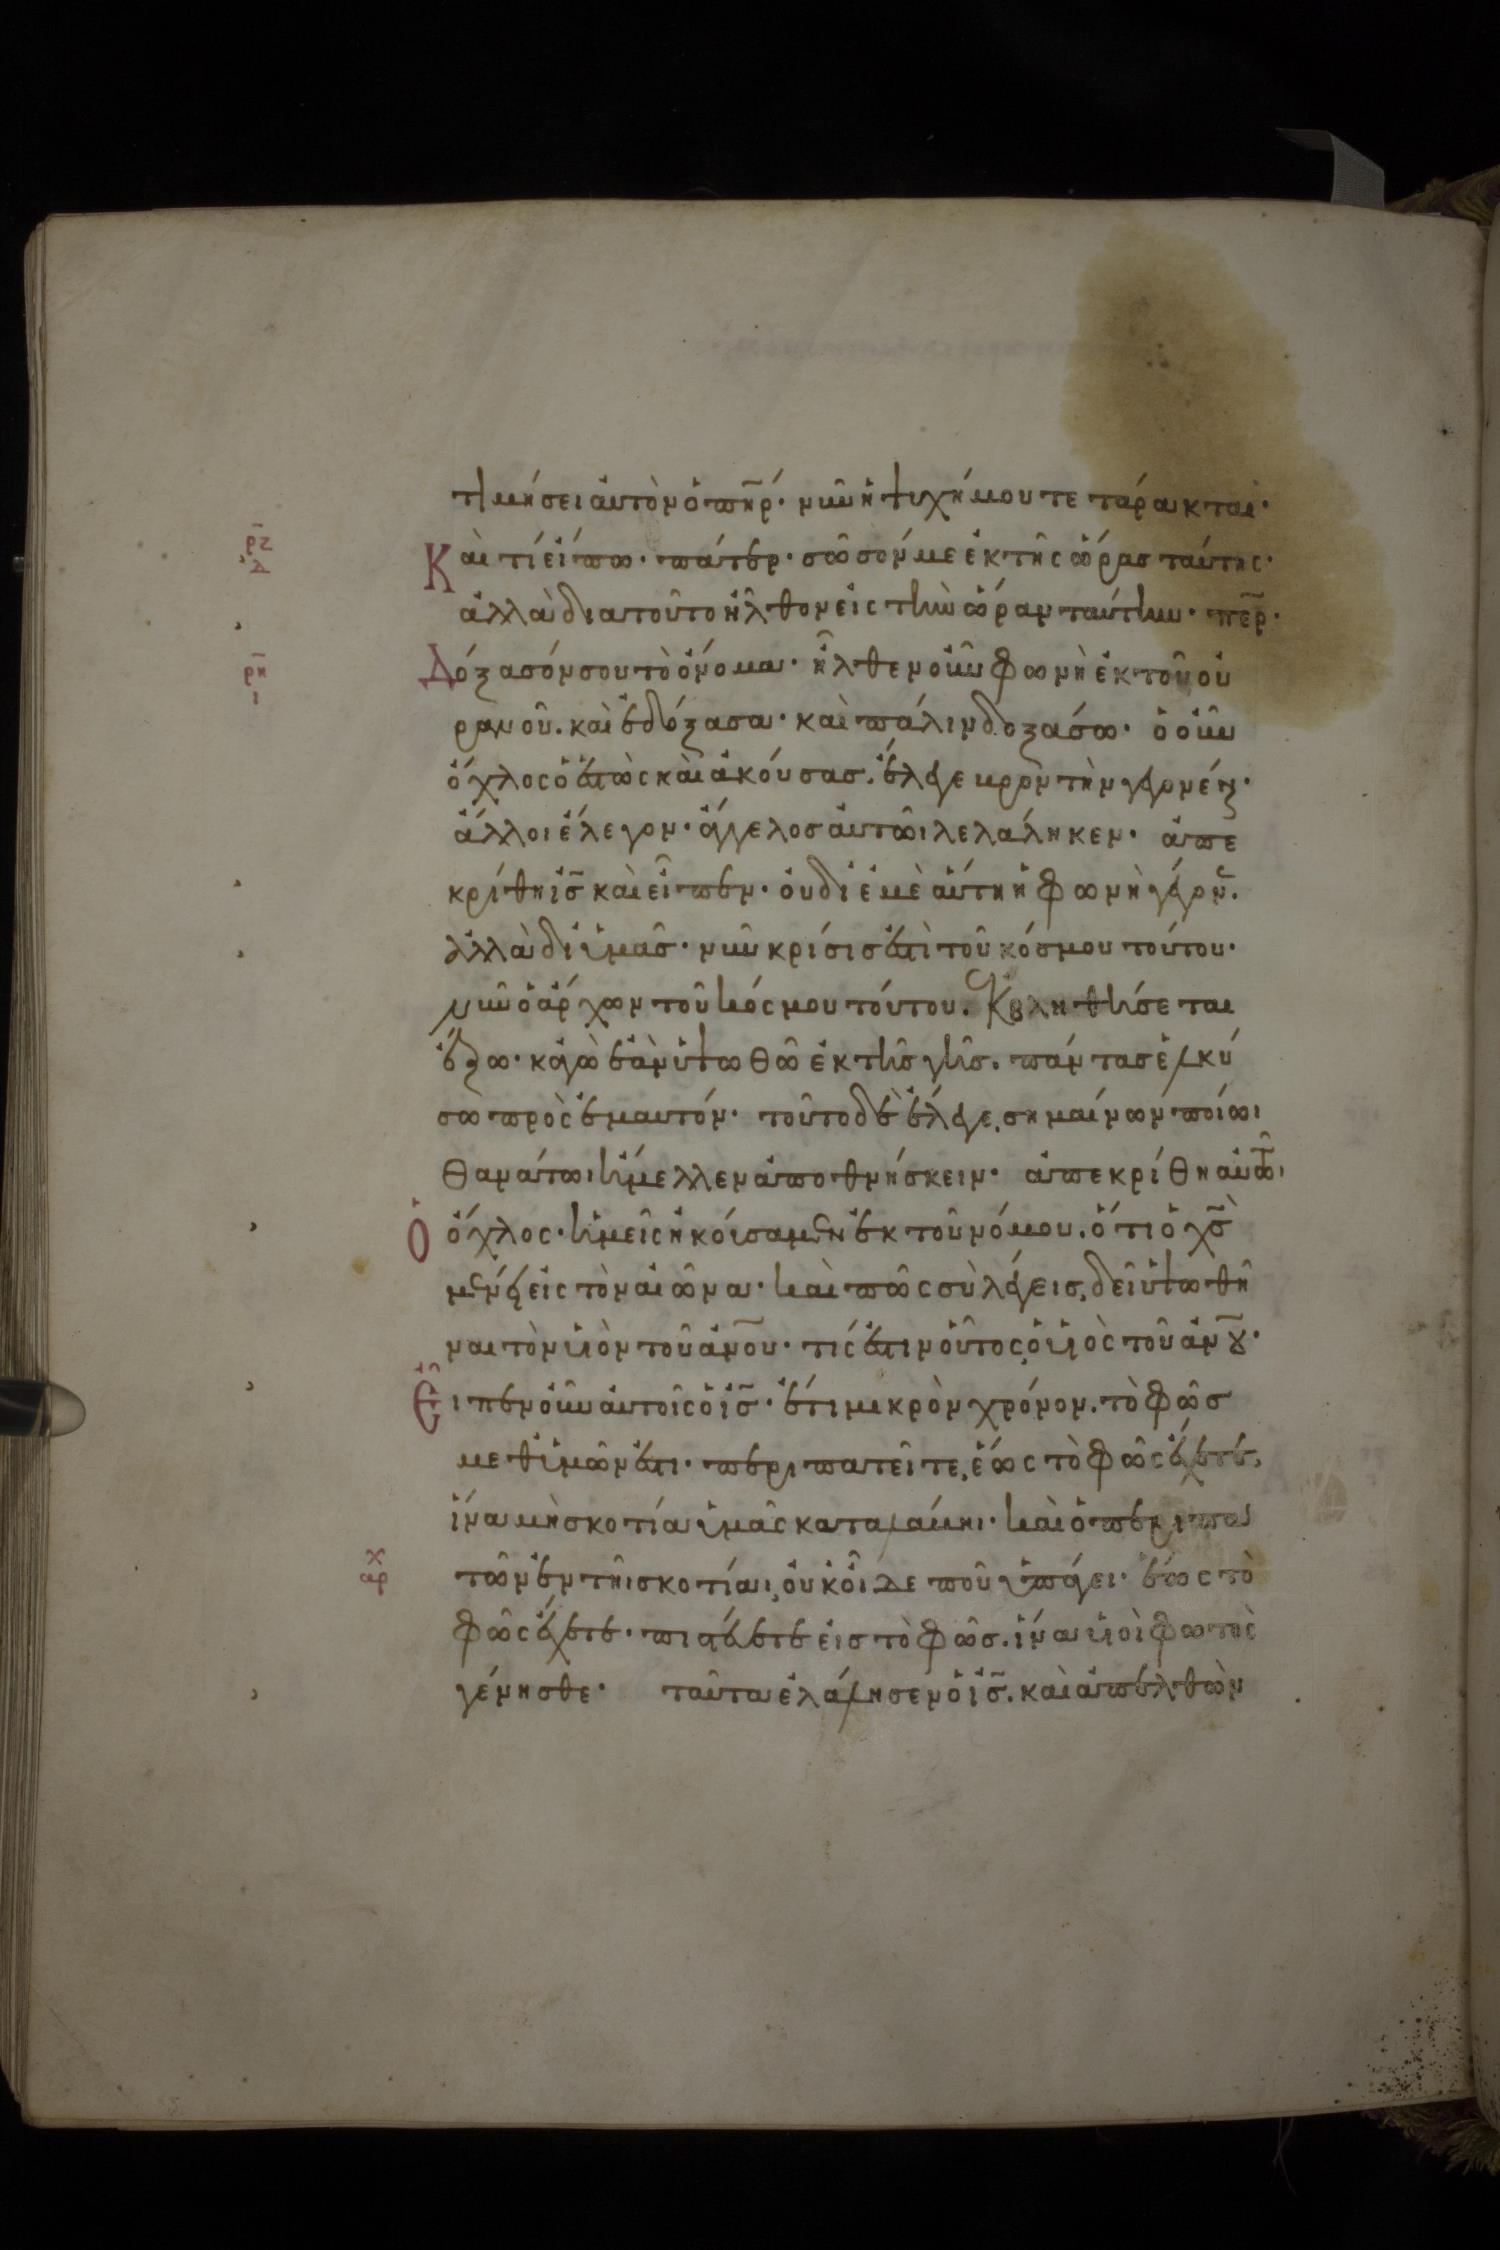 τιμήσει αὐτὸν ὁ πη̅ρ· νῦν ἡ ψυχή μου τετάρακται·
ρ̅ζ
δ
Καὶ τί εἴπω· πάτερ· σῶσόν με ἐκ τῆς ὥρας ταύτης·
ἀλλὰ διατοῦτο ἦλθον εἰς τὴν ὥραν ταύτην· πε̅ρ·
ρ̅η
ι
Δόξασόν σου τὸ ὄνομα· ἦλθεν οὖν φωνὴ ἐκ τοῦ οὐ
ρανοῦ. καὶ ἐδόξασα· καὶ πάλιν δοξάσω· ὁ οὖν
ὄχλος ὁ ἑστὼς καὶ ἀκούσας. ἔλεγε βροντὴν γεγονέν·
ἄλλοι ἔλεγον· ἄγγελος αὐτῶι λελάληκεν· ἀπε
κρίθη ι̅ς καὶ εἶπεν· οὐ δι ἐμὲ αὕτη ἡ φωνὴ γέγον.
ἀλλὰ δι ὑμᾶς· νῦν κρίσις ἐστὶ τοῦ κόσμου τούτου·
νῦν ὁ ἄρχων τοῦ κόσμου τούτου. βληθήσεται
ἔξω· κἀγὼ ἐὰν ὑψωθῶ ἐκ τῆς γῆς. πάντας ἑλκύ
σω πρὸς ἐμαυτόν· τοῦτο δὲ ἔλεγε, σημαίνων ποίωι
θανάτωι ἤμελλεν ἀποθνήσκειν· ἀπεκρίθη αὐτῶι
Ὁ ὄχλος· ἡμεῖς ἠκούσαμεν ἐκ τοῦ νόμου. ὅτι ὁ χ̅ς
μένει εἰς τὸν αἰῶνα· καὶ πῶς σὺ λέγεις, δεῖ ὑψωθῆ
ναι τὸν υἱὸν τοῦ α̅νου· τίς ἐστιν οὗτος, ὁ υἱὸς τοῦ α̅νου·
Εἶπεν οὖν αὐτοῖς ὁ ι̅ς· ἔτι μικρὸν χρόνον. τὸ φῶς
μεθ ὑμῶν ἐστι· περιπατεῖτε, ἕως τὸ φῶς ἔχετε,
ἵνα μὴ σκοτία ὑμᾶς καταλάβηι· καὶ ὁ περιπα
τῶν ἐν τῆι σκοτίαι, οὐκ οἶδε ποῦ ὑπάγει· ἕως τὸ
φῶς ἔχετε· πιστεύετε εἰς τὸ φῶς. ἵνα υἱοὶ φωτὸς
γένησθε· ταῦτα ἐλάλησεν ὁ ι̅ς. καὶ ἀπελθὼν